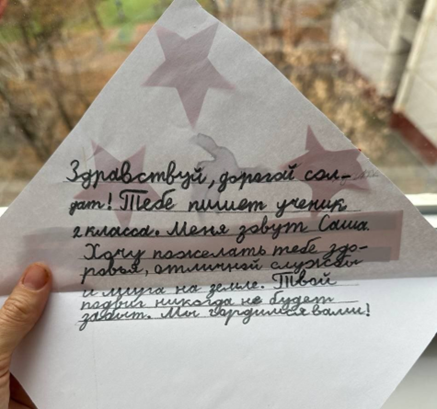 Здравствуй, дорогой сол-
дат! Тебе пишет ученик
2 класса. Меня зовут Саша.
Хочу пожелать тебе здо-
ровья, отличной службы
и мира на земле. Твой
подвиг никогда не будет
забыт. Мы гордимся вами!